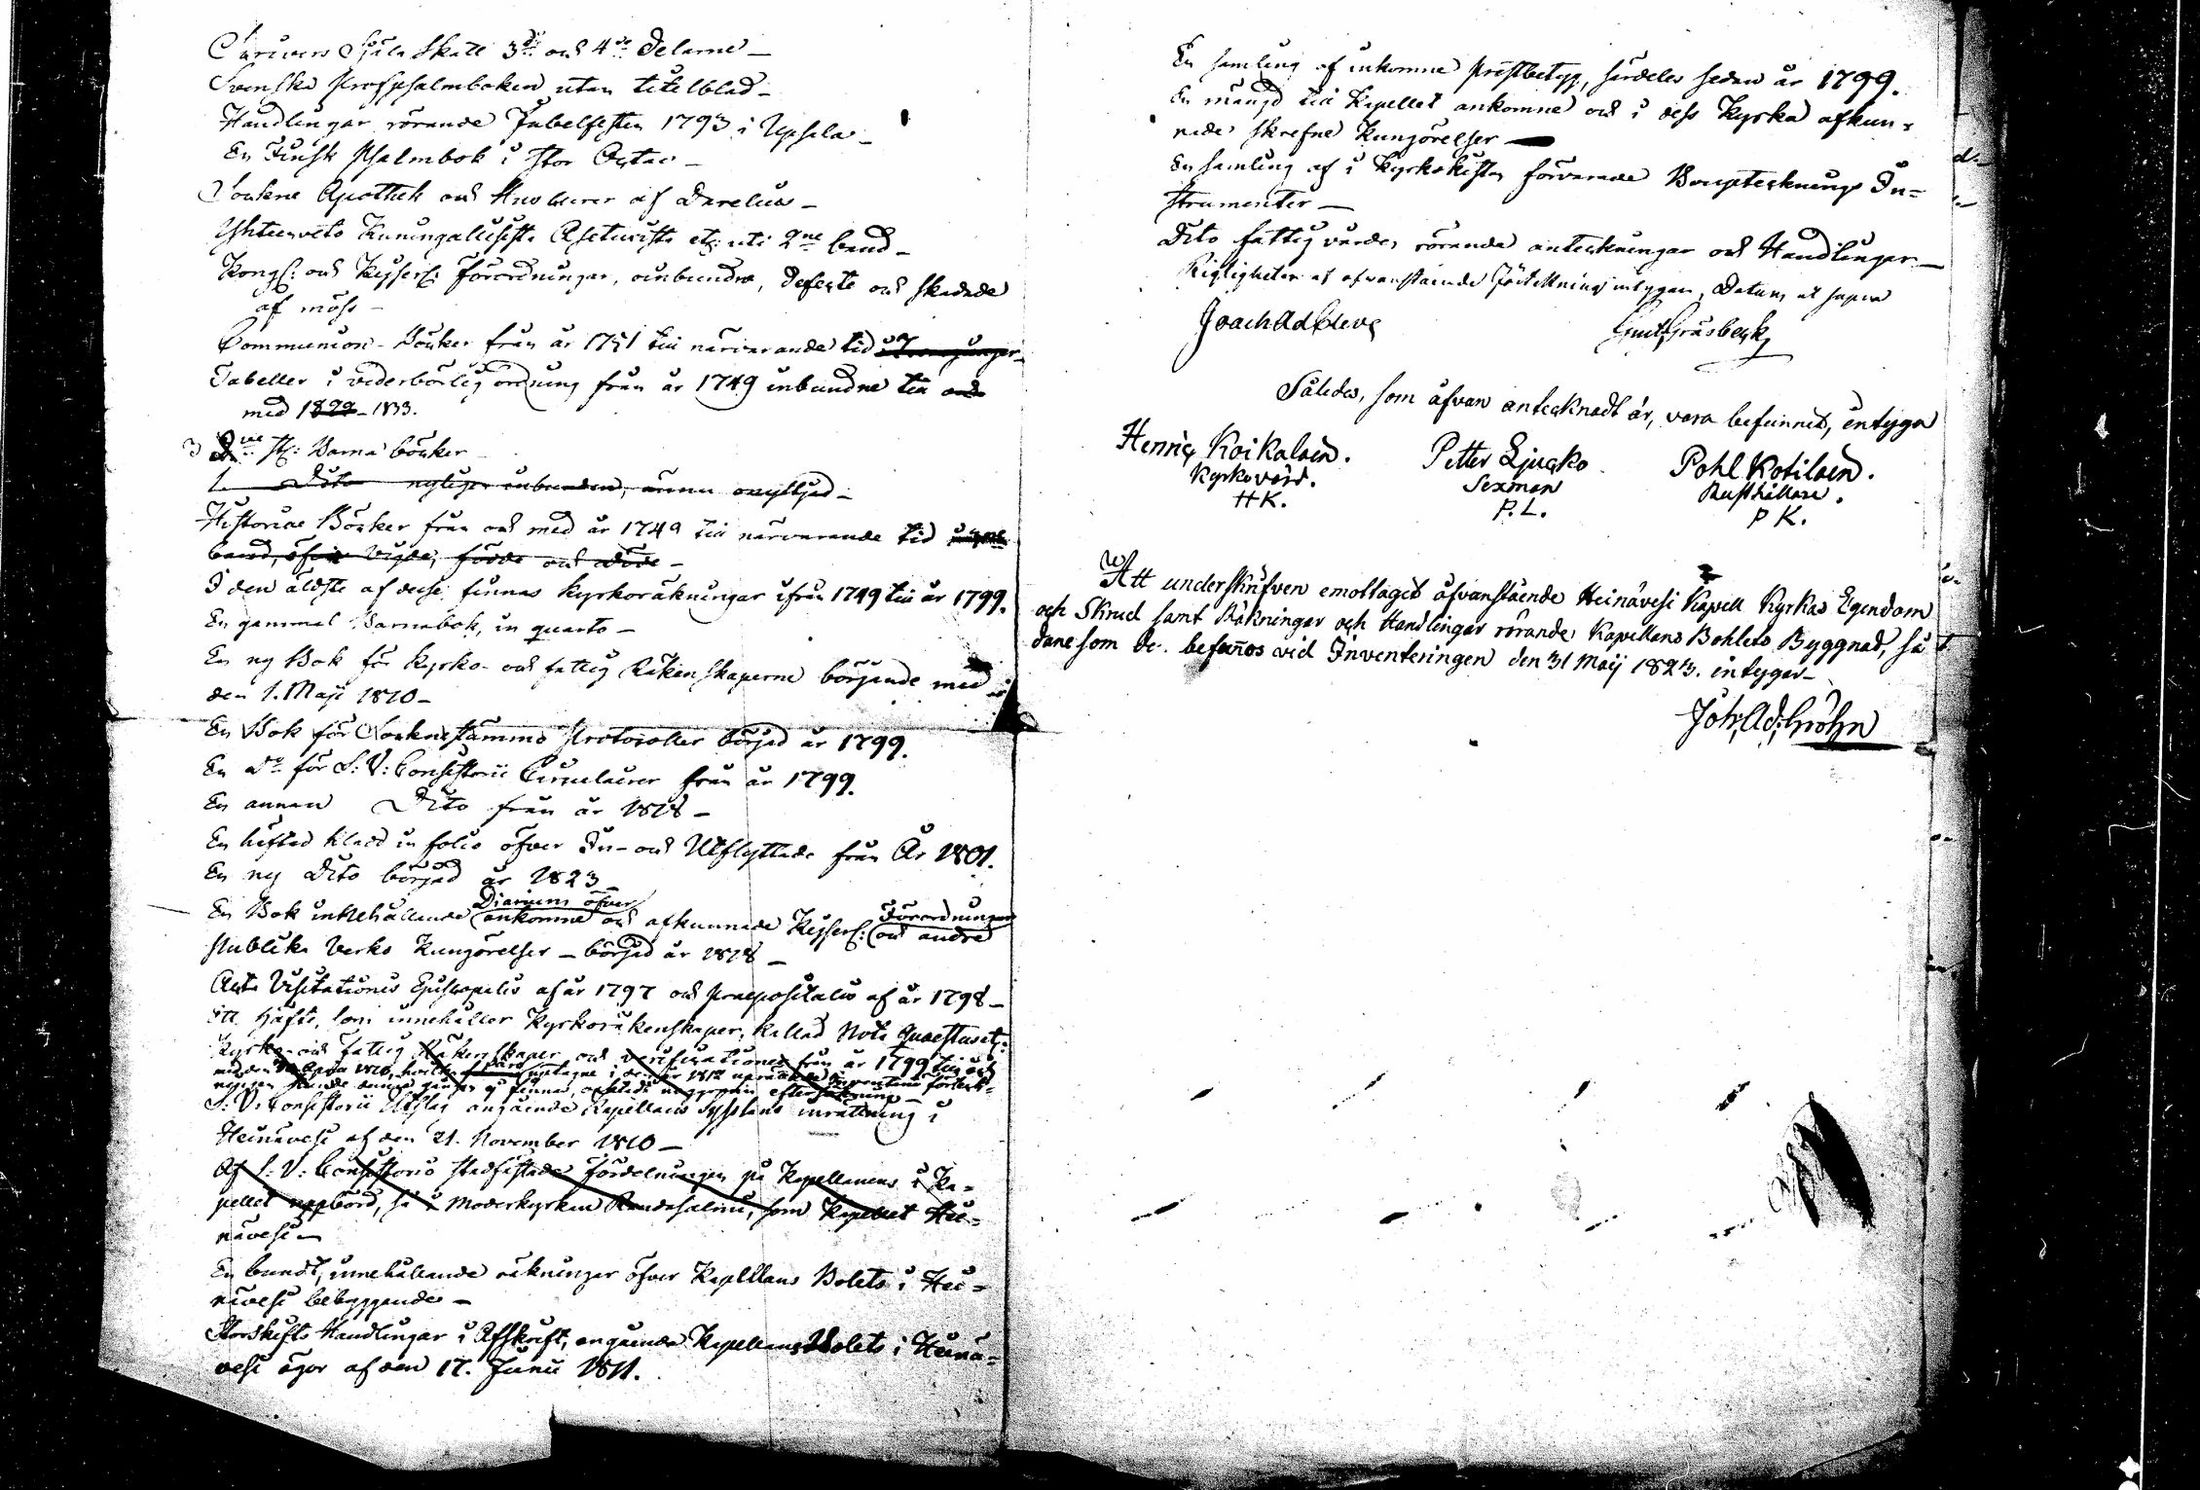 Scrivers Själa Skatt 3die och 4de Delarne –
Svenska Profpsalmboken utan titelblad –
Handlingar rörande Jubelfesten 1793 i Upsala –
En Finsk Psalmbok i stor Octav –
Sockne Apothek och Huscurer af Darelius –
Yhteenveto Kuningallisista Asetuxista etc: uti 2ne band –
Kongl: och Kejserl: Förordningar, oinbundne, defecte och skadade
af möss –
Communion-Böcker från år 1751 till närvarande tid
Tabeller i vederbörlig ordning från år 1749 inbundne till och
med 1822 – 1833.
3 2ne st: Barna böcker
1. Dito nyligen inbunden, ännu onyttjad –
Historiae Böcker från och med år 1749 till närvarande tid
band, öfver Vigde, födde och döde –
I den äldste af desse finnas Kyrkoräkningar ifrån 1749 till år 1799.
En gammal Barnabok, in quarto –
En ny Bok för Kyrko- och fattig Räkenskaperne börjande med
den 1. Maji 1810 –
En Bok för Sockenstämmo Protocoller börjad år 1799.
En Do för S: V: Consistorii Circulairer från år 1799.
En annan Dito från år 1818 –
En häftad Kladd in folio öfver In- och Utflyttade från År 1801.
En ny Dito börjad år 1823 –
Diarium öfver Förordningar
En Bok innehållande ankomne och afkunnade Kejserl: och andre
Publika Verks Kungörelser – börjad år 1818 –
Acta Visitationis Episcopalis af år 1797 och Praepositalis af år 1798 –
Ett Häfte, som innehåller Kyrkoräkenskaper, kallad Nota Quaestus etc:
Kyrko- och fattig Räkenskaper och Verificationer från år 1799 till och
S: V: Consistorii Utslag angående Kapellans Sysslans inrättning i
Heinävesi af den 21. November 1810 –
Af S: V: Consistorio stadfästade fördelningen på Kapellanens i Ka=
pellet uppbörd, så i Moderkyrkan Randasalmi, som Kapellet Hei=
nävesi –
En bundt, innehållande räkningar öfver Kapellans Bolets i Hei=
nävesi bebyggande –
Storskifts Handlingar i Afskrift, angående Kapellans Bolets i Heinä=
vesi ägor af den 17. Junii 1811.
En samling af inkomne prestbetyg, särdeles sedan år 1799.
En mängd till Kapellet ankomne och i dess Kyrka afkun=
nade skrefne Kungörelser –
En samling af i Kyrkokistan förvarade Bouptecknings In=
strumenter –
Dito fattigvården rörande anteckningar och Handlingar –
Rigtigheten af ofvanstående förtekning intygar, Datum ut supra
Joach Ad Cleve
Gust Gråsbeck
Således, som åfvan antecknadt är, vara befunnit, intyga
Henric Koikalain. Petter Ljucko Pohl Kotilain.
Kyrkovärd. Sexman Rusthållare.
HK. P. L. P K.
Att underskrifven emottagit åfvanstående Heinävesi Kapell Kyrkas Egendom
och Skrud samt Räkningar och Handlingar rörande Kapellans Bohlets Byggnad, så
dane som de befunnos vid Inventeringen den 31 Maij 1823. intygar –
Joh: Ad: Gröhn